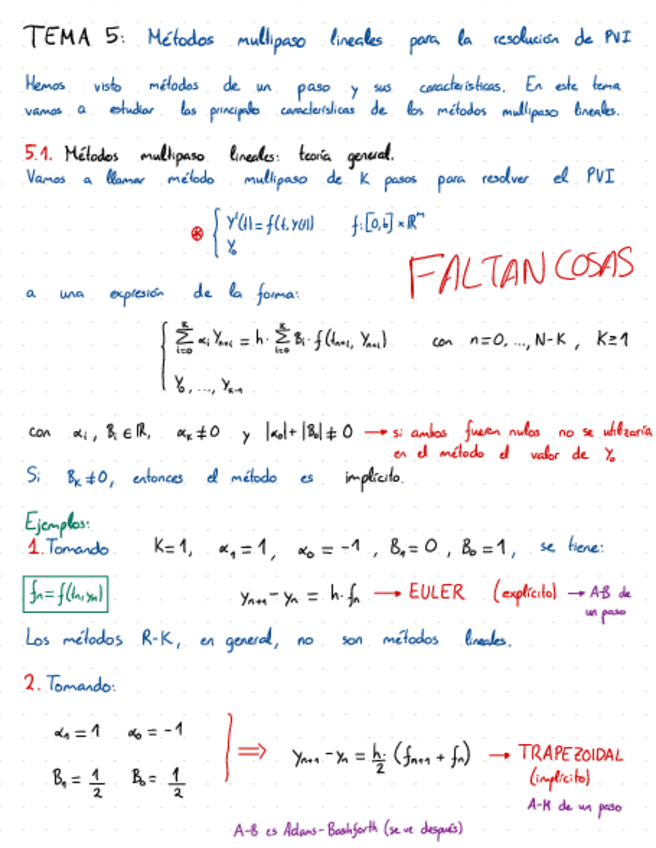 TEMA 5: Métodos multipaso lineales para la resolución de PVI
Hemos visto métodos de un paso y sus características. En este tema
vamos a estudiar las principales características de los métodos multipaso lineales.
5.1. Métodos multipaso lineales: teoría general.
Vamos a llamar método multipaso de K pasos para resolver el PVI
⊛ { Y'(t) = f(t, Y(t)) f: [0,b] × ℝᵐ
Y₀
FALTAN COSAS
a una expresión de la forma:
{ Σᵢ₌₀ᴷ αᵢ Yₙ₊ᵢ = h · Σᵢ₌₀ᴷ Bᵢ · f(tₙ₊ᵢ, Yₙ₊ᵢ) con n=0, ..., N-K, K≥1
Y₀, ..., Yₖ₋₁
con αᵢ, Bᵢ ∈ ℝ, αₖ ≠ 0 y |α₀| + |B₀| ≠ 0 → si ambos fuesen nulos no se utilizaría
en el método el valor de Y₀
Si Bₖ ≠ 0, entonces el método es implícito.
Ejemplos:
1. Tomando K=1, α₁ = 1, α₀ = -1, B₁ = 0, B₀ = 1, se tiene:
fₙ = f(tₙ, yₙ) yₙ₊₁ - yₙ = h · fₙ → EULER (explícito) → A-B de
un paso
Los métodos R-K, en general, no son métodos lineales.
2. Tomando:
α₁ = 1 α₀ = -1
B₁ = 1/2 B₀ = 1/2 ⟹ yₙ₊₁ - yₙ = h/2 · (fₙ₊₁ + fₙ) → TRAPEZOIDAL
(implícito)
A-M de un paso
A-B es Adams-Bashforth (se ve después)